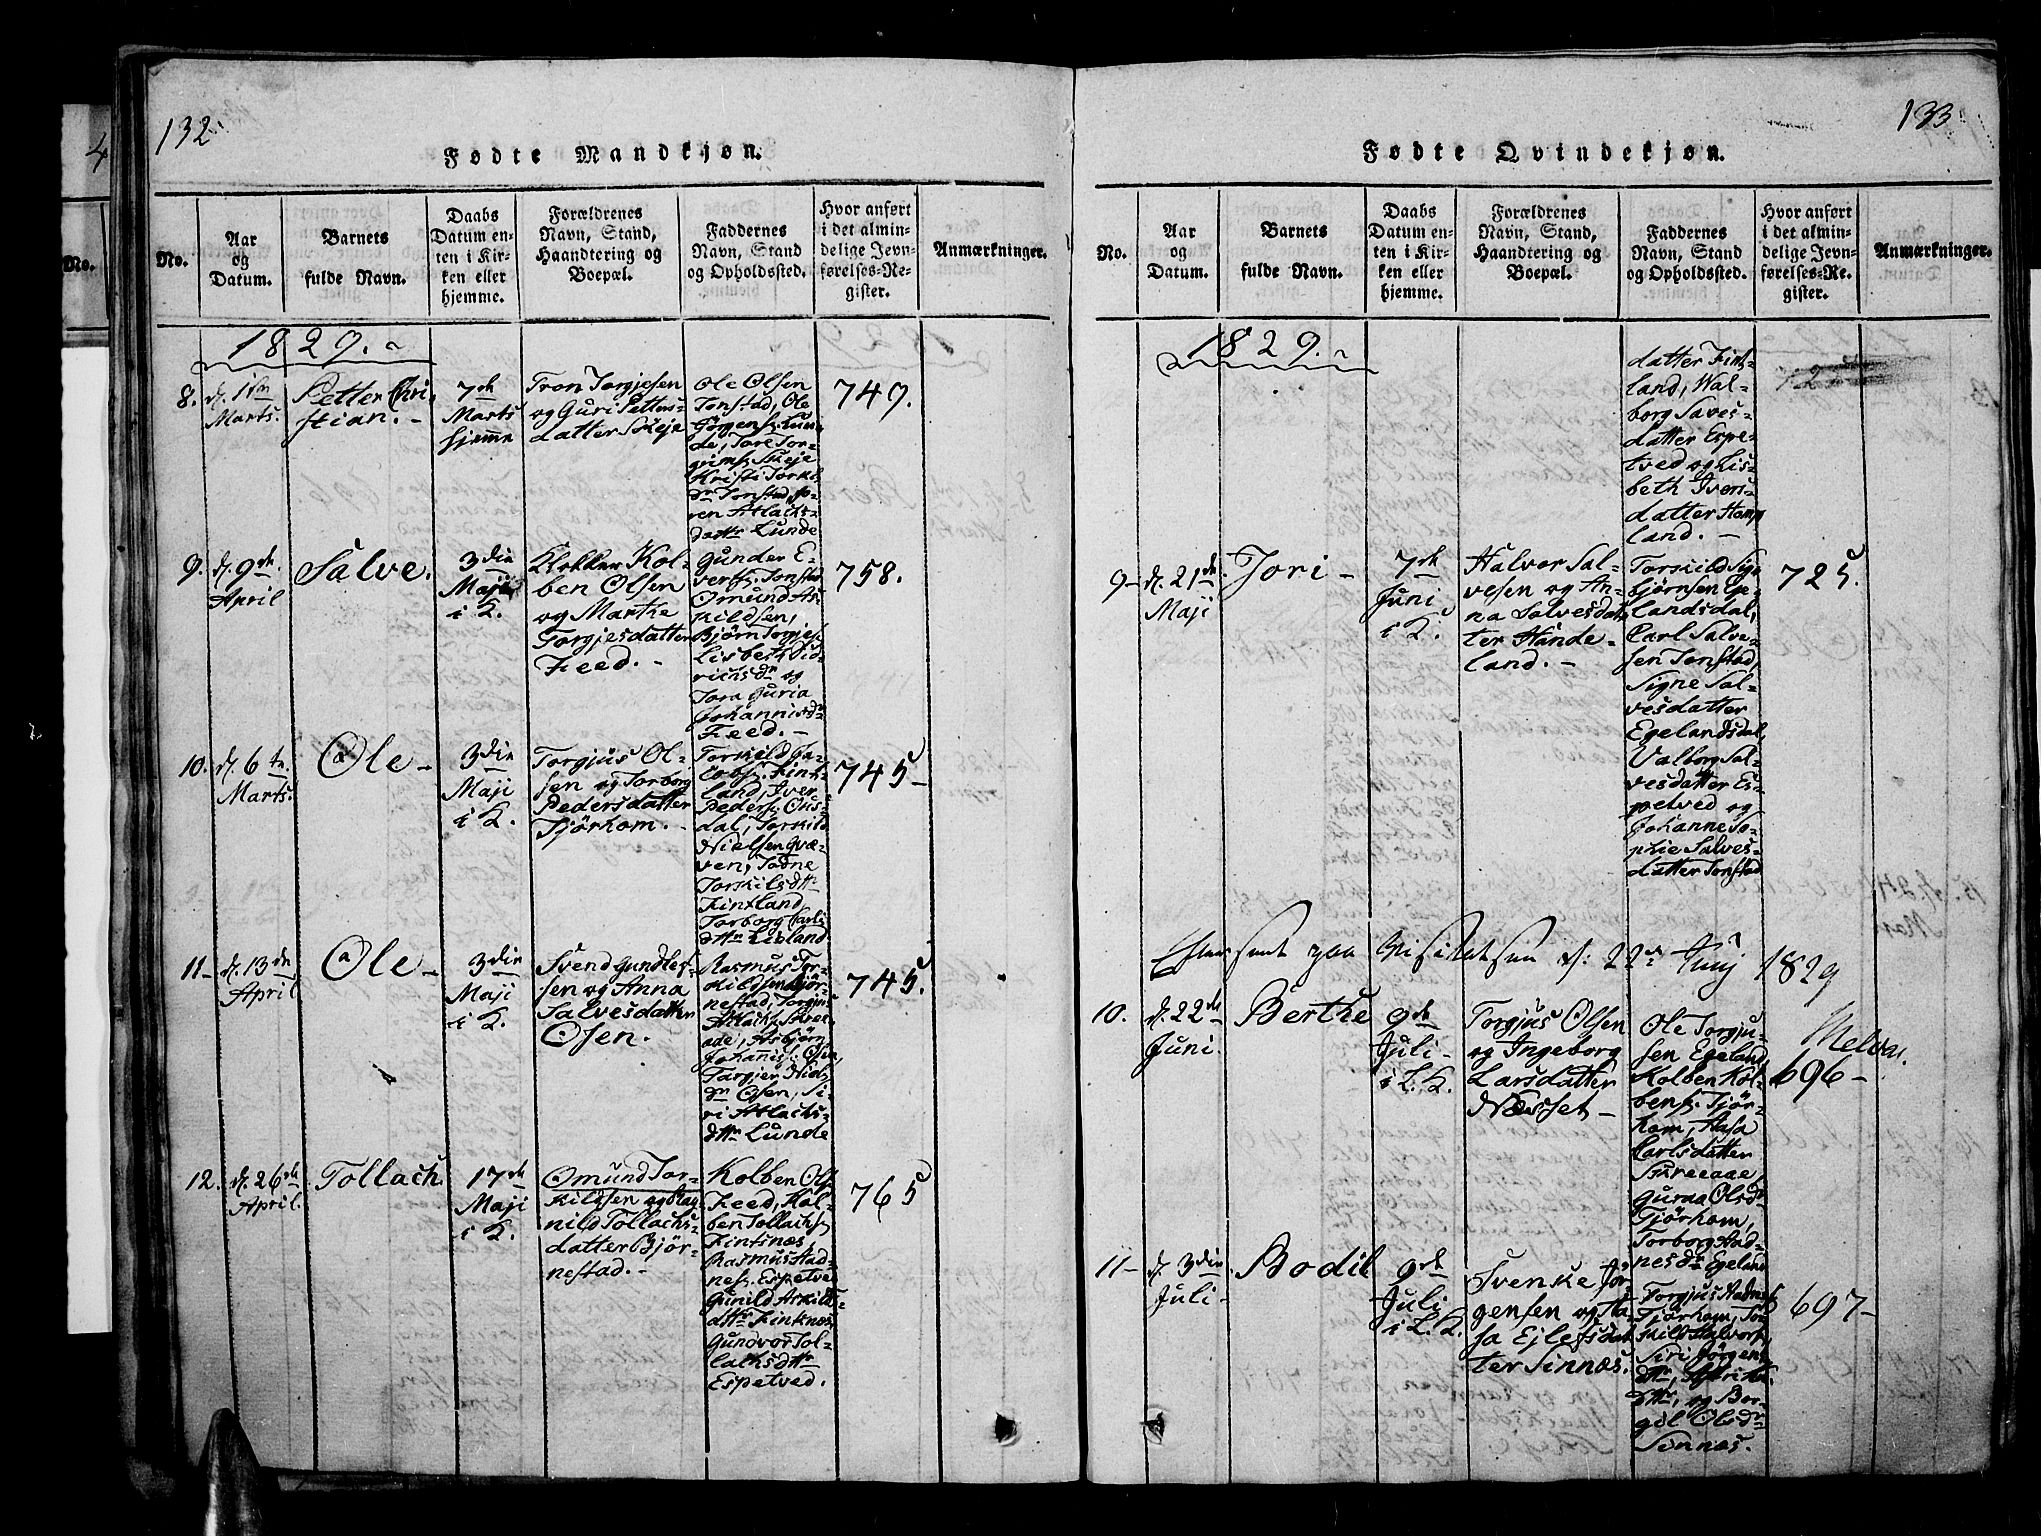 132
Fødte Mandkjøn.
No.
Aar
og
Datum.
Barnets
fulde Navn.
Daabs
Datum en-
ten i Kir-
ken eller
hjemme.
Forældrenes
Navn, Stand,
Haandtering og
Boepæl.
Faddernes
Navn, Stand
og Opholdssted.
Hvor anført
i det almin-
delige Jevn-
førelses-Re-
gister.
Anmærkninger.
1829.
8.
d. 1ste
Marts.
Petter Chri-
stian.
7de
Marts
hjemme
Tron Torgjesen
og Guri Petters-
datter Skeje
Ole Olsen
Tonstad, Ole
Jørgens. Lun-
de, Tore Tor-
grims. Skeje
Kristi Torkils
dr Tonstad,
Atlachs-
dattr Lunde
749.
9.
d. 9de
April
Salve.
3die
Maji
i K.
Klokker Kol-
ben Olsen
og Martha
Torgjesdatter
Feed.
Gunder E-
verts. Tonstad
Omund As-
kildsen,
Bjørn Torgjes.
Lisbeth Did-
richsdr og
Tora Guria
Johannisdr
Feed.
758.
10.
d. 6te
Marts.
Ole
3die
Maji
i K.
Torgjus Ol-
sen og Torborg
Pedersdatter
Tjørhom.
Torskild Ja-
cobs. Fint-
land, Iver
Peders. Ous-
dal, Torskild
Nielsen Qvæ-
ven, Tadne
Torskilsdttr
Fintland,
Torborg Carls
dttr Lieland
745
11
d. 13de
April
Ole
3die
Maji
i K.
Svend Gundles-
sen og Anna
Salvesdatter
Osen.
Rasmus Tor-
kildsen Bjør-
nestad, Torgim
Atlachs.
Asbjørn
Johannis. Osen,
Targjer Niels
dr Osen, Si-
ri Atlachs-
dttr Lunde
745.
12.
d. 26de
April.
Tollach.
17de
Maji
i K.
Omund Tor-
kildsen og Rag-
nild Tollachs-
datter Bjør-
nestad.
Kolben Ols.
Feed, Kal-
ben Tollachs.
Fintsnæs,
Rasmus Aad-
nes. Espetved
Gunild Askilds-
dttr Finknæs,
Gundvor Tol-
lachsdttr
Espetved.
765
133
Fødte Qvindekjøn.
No.
Aar
og
Datum.
Barnets
fulde Navn.
Daabs
Datum en-
ten i Kir-
ken eller
hjemme.
Forældrenes
Navn, Stand,
Haandtering og
Boepæl.
Faddernes
Navn, Stand
og Opholdssted.
Hvor anført
i det almin-
delige Jevn-
førelses-Re-
gister.
Anmærkninger.
1829.
datter Fint-
land, Wal-
borg Saves-
datter Espe-
tved og Lis-
beth Ivers-
datter Hamp
land.
9
d. 21de
Maji
Jori
7de
Juni
i K.
Halvor Sal-
vesen og An-
na Salvesdat-
ter Hande-
land.
Torskild Sig-
bjørnsen Ege-
landsdal,
Carl Salve-
sen Tonstad,
Signe Sal-
vesdatter
Egelandsdal,
Valborg Sal-
vesdatter Es-
petved og
Johanne So-
phie Salves-
datter Tonstad
725.
Efterseet paa Visitatsen d. 22de Junij 1829
10.
d. 22de
Juni.
Berthe
9de
Juli
i L.K.
Torgjus Olsen
og Ingeborg
Larsdatter
Næsset
Ole Torgju-
sen Egeland,
Kolben Kol-
bens. Tjør-
hom, Aasa
Carlsdatter
Skreeaae,
Guraa Olsdr
Tjørhom,
Torborg Aad-
nesdr Egeland
696
11
d. 3die
Juli
Bodil
9de
Juli
i L.K.
Svenke Jør
gensen og Aa-
sa Ejlefsdat-
ter Sinnæs.
Torgjus Aadnes.
Tjørhom, Tor
kild Halvors.
Siri Jørgens
dttr,
dttr, og Bor-
gel Olsdr
Sinnæs.
697